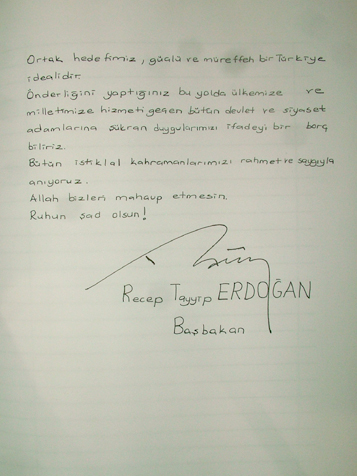 Ortak hedefimiz, güçlü ve müreffeh bir Türkiye
idealidir.
Önderliğini yaptığınız bu yolda ülkemize ve
milletimize hizmeti geçen bütün devlet ve siyaset
adamlarına şükran duygularımızı ifadeyi bir borç
biliriz.
Bütün istiklal kahramanlarımızı rahmet ve saygıyla
anıyoruz.
Allah bizleri mahcup etmesin.
Ruhun şad olsun!
Recep Tayyip ERDOĞAN
Başbakan